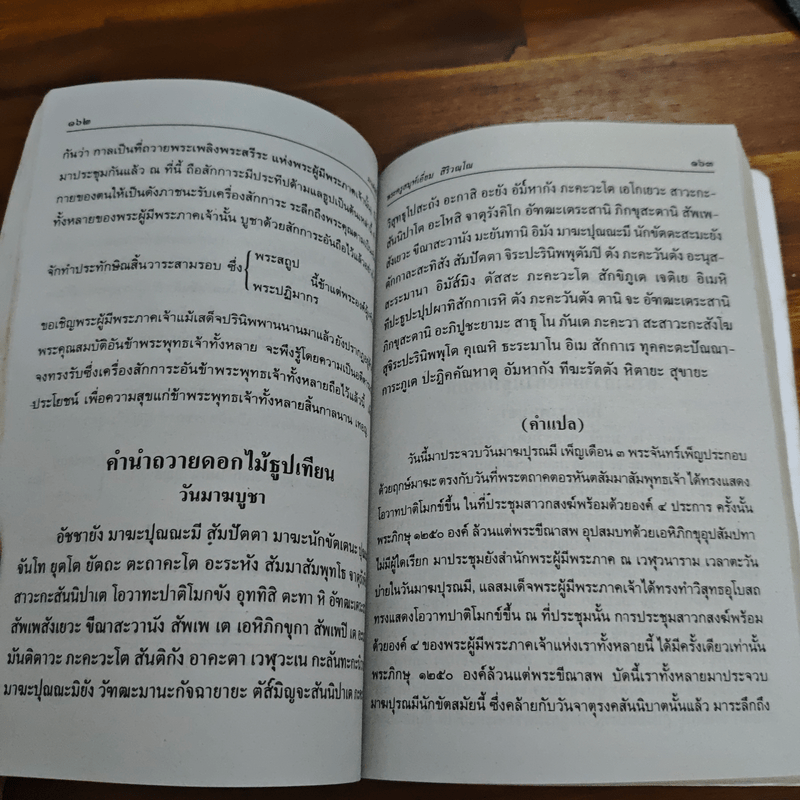 ๑๖๒
กันว่า กาลเป็นที่ถวายพระเพลิงพระสรีระ แห่งพระผู้มีพระภาคเจ้า
มาประชุมกันแล้ว ณ ที่นี้ ถือสักการะมีประทีปด้ามแลธูปเป็นต้น
กายของตนให้เป็นดังภาชนะรับเครื่องสักการะ ระลึกถึงพระคุณตาม
ทั้งหลายของพระผู้มีพระภาคเจ้านั้น บูชาด้วยสักการะอันถือไว้แล้ว
จักทำประทักษิณสิ้นวาระสามรอบ ซึ่ง พระสถูป พระปฏิมากร นี้ข้าแต่พระองค์
ขอเชิญพระผู้มีพระภาคเจ้าแม้เสด็จปรินิพพานนานมาแล้ว ยังปรากฏอยู่
พระคุณสมบัติอันข้าพระพุทธเจ้าทั้งหลาย จะพึงรู้โดยความเป็น
จงทรงรับซึ่งเครื่องสักการะอันข้าพระพุทธเจ้าทั้งหลายถือไว้แล้วนี้
ประโยชน์ เพื่อความสุขแก่ข้าพระพุทธเจ้าทั้งหลายสิ้นกาลนาน เทอญ
คำนำถวายดอกไม้ธูปเทียน
วันมาฆบูชา
อัชชายัง มาฆะปุณณะมี สัมปัตตา มาฆะนักขัตเตนะ
จันโท ยุตโต ยัตถะ ตะถาคะโต อะระหัง สัมมาสัมพุทโธ
สาวะกะสันนิปาเต โอวาทะปาติโมกขัง อุททิสิ ตะทา หิ
สัพเพสังเยวะ ขีณาสะวานัง สัพเพ เต เอหิภิกขุกา สัพเพปิ เต
มันติตาวะ ภะคะวะโต สันติกัง อาคะตา เวฬุวะเน กะลันทะกะ
มาฆะปุณณะมิยัง วัฑฒะมานะกัจฉายายะ ตัสมิญจะสันนิปาเต
๑๖๓
พระครูสมุห์เอี่ยม สิริวณฺโณ
วิสุทธุโปสะถัง อะกาสิ อะยัง อัมหากัง ภะคะวะโต เอโกเยวะ สาวะกะ-
สันนิปาโต อะโหสิ จาตุรังคิโก อัฑฒะเตระสานิ ภิกขุสะตานิ สัพเพ-
สังเยวะ ขีณาสะวานัง มะยันทานิ อิมัง มาฆะปุณณะมี นักขัตตะสะมะยัง
ตักกาละสะทิสัง สัมปัตตา จิระปะรินิพพุตัมปิ ตัง ภะคะวันตัง อะนุส-
สะระมานา อิมัสมิง ตัสสะ ภะคะวะโต สักขิภูเต เจติเย อิเมหิ
ทีปะธูปะปุปผาทิสักกาเรหิ ตัง ภะคะวันตัง ตานิ จะ อัฑฒะเตระสานิ
ภิกขุสะตานิ อะภิปูชะยามะ สาธุ โน ภันเต ภะคะวา สะสาวะกะสังโฆ
สุจิระปะรินิพพุโต คุเณหิ ธะระมาโน อิเม สักกาเร ทุคคะตะปัณณา-
การะภูเต ปะฏิคคัณหาตุ อัมหากัง ทีฆะรัตตัง หิตายะ สุขายะ
(คำแปล)
วันนี้มาประจวบวันมาฆปุรณมี เพ็ญเดือน ๓ พระจันทร์เพ็ญประกอบ
ด้วยฤกษ์มาฆะ ตรงกับวันที่พระตถาคตอรหันตสัมมาสัมพุทธเจ้า ได้ทรงแสดง
โอวาทปาติโมกข์ขึ้น ในที่ประชุมสาวกสงฆ์พร้อมด้วยองค์ ๔ ประการ ครั้งนั้น
พระภิกษุ ๑๒๕๐ องค์ ล้วนแต่พระขีณาสพ อุปสมบทด้วยเอหิภิกขุอุปสัมปทา
ไม่มีผู้ใดเรียก มาประชุมยังสำนักพระผู้มีพระภาค ณ เวฬุวนาราม เวลาตะวัน
บ่ายในวันมาฆปุรณมี, แลสมเด็จพระผู้มีพระภาคเจ้าได้ทรงทำวิสุทธอุโบสถ
ทรงแสดงโอวาทปาติโมกข์ขึ้น ณ ที่ประชุมนั้น การประชุมสาวกสงฆ์พร้อม
ด้วยองค์ ๔ ของพระผู้มีพระภาคเจ้าแห่งเราทั้งหลายนี้ ได้มีครั้งเดียวเท่านั้น
พระภิกษุ ๑๒๕๐ องค์ล้วนแต่พระขีณาสพ บัดนี้เราทั้งหลายมาประจวบ
มาฆปุรณมีนักขัตสมัยนี้ ซึ่งคล้ายกับวันจาตุรงคสันนิบาตนั้นแล้ว มาระลึกถึง